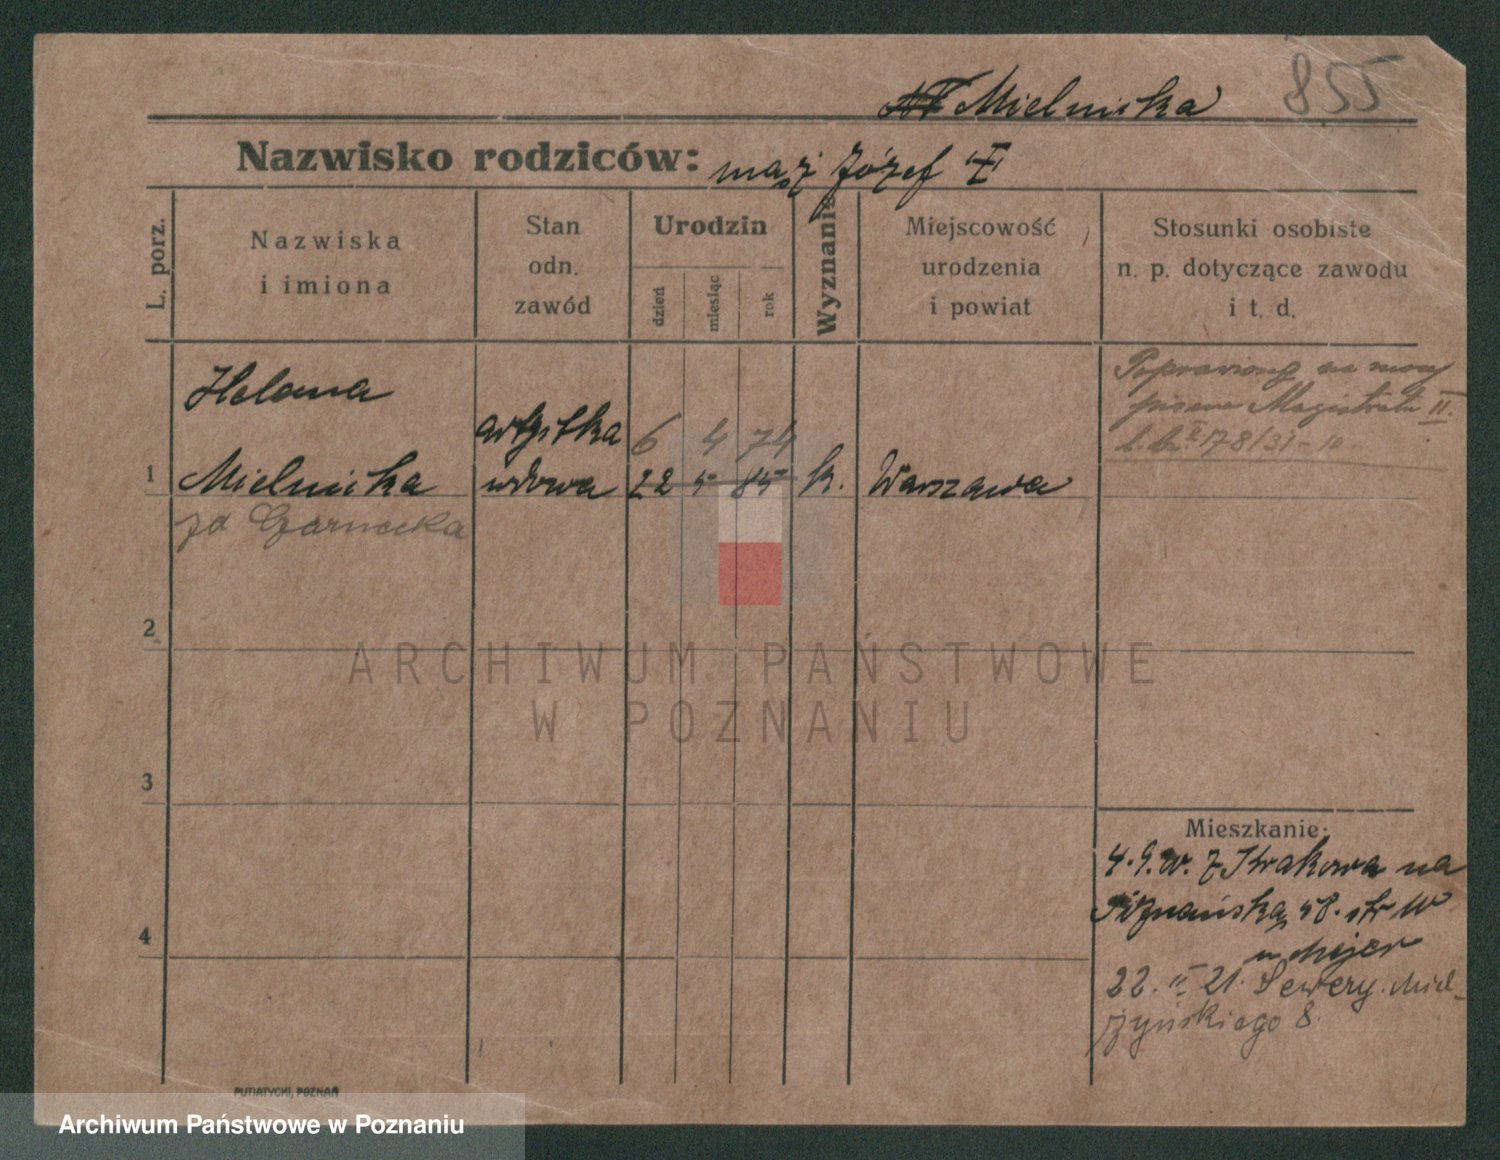 Mielnicka 855
Nazwisko rodziców: mąż Józef
L. porz.
Nazwiska
i imiona
Stan
odn.
zawód
Urodzin
dzień
miesiąc
rok
Wyznanie
Miejscowość
urodzenia
i powiat
Stosunki osobiste
n. p. dotyczące zawodu
i t. d.
Helena
artystka 6 4 74
1 Mielnicka wdowa 22 5 85 k. Warszawa
zd Czarnecka
Poprawiono na mocy
pisma Magistratu II.
178/31-10
2
3
4
Mieszkanie:
z Krakowa na
Poznańską 58.
22. II. 21. Sewery. Miel-
żyńskiego 8.
PUTIATYCKI, POZNAŃ
ARCHIWUM PAŃSTWOWE
W POZNANIU
Archiwum Państwowe w Poznaniu